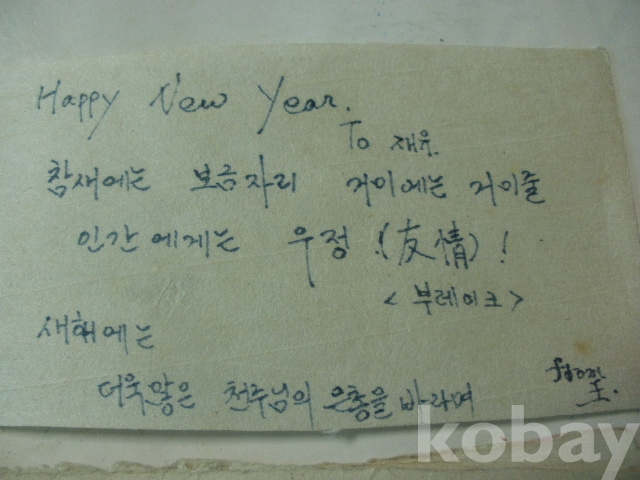 Happy New Year.
To 재유.
참새에는 보금자리 거미에는 거미줄
인간에게는 우정!(友情)!
<부레이크>
새해에는
더욱 많은 천주님의 은총을 바라며
kobay